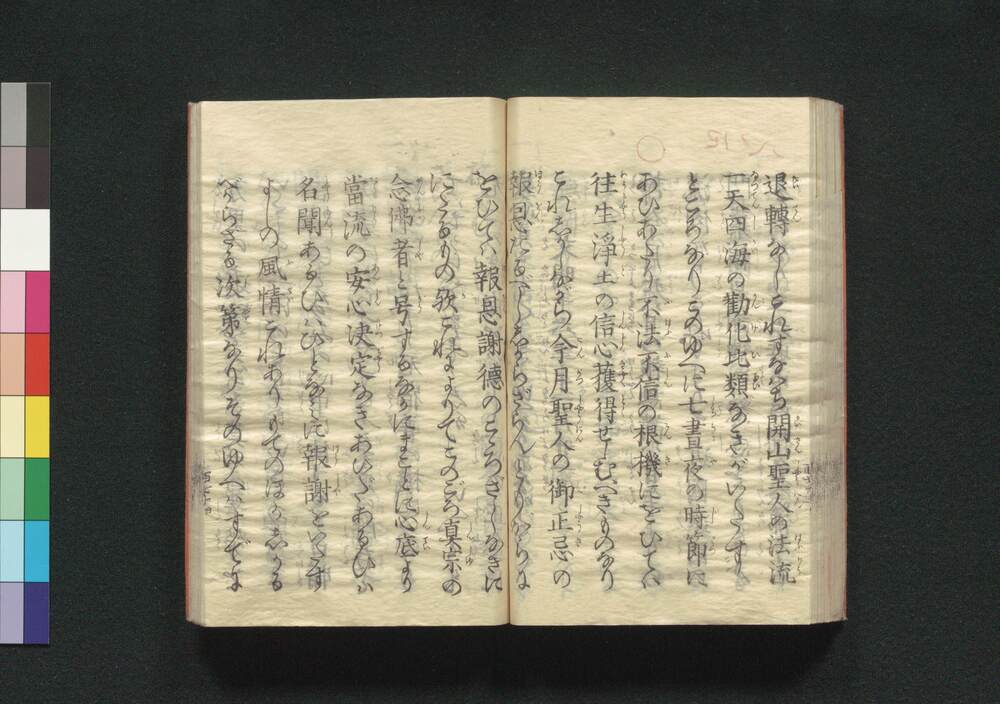 退轉なしこれすなはち開山聖人の法流
一天四海の勸化比類なきがいたすす
ところなりこのゆへに七晝夜の時節に
あひあたり不法不信の根機にをひては
往生淨土の信心獲得せしむべきものなり
これしかしながら今月聖人の御正忌の
報恩たるべししからざらんともがらに
をひては報恩謝德のこゝろざしなきに
にたるもの歟これによりてこのごろ真宗の
念佛者と号するなかにまことに心底より
當流の安心決定なきあひだあるひは
名聞あるひはひとなみに報謝をいたす
よしの風情これありもてのほかしかる
べからざる次第なりそのゆへはすでに